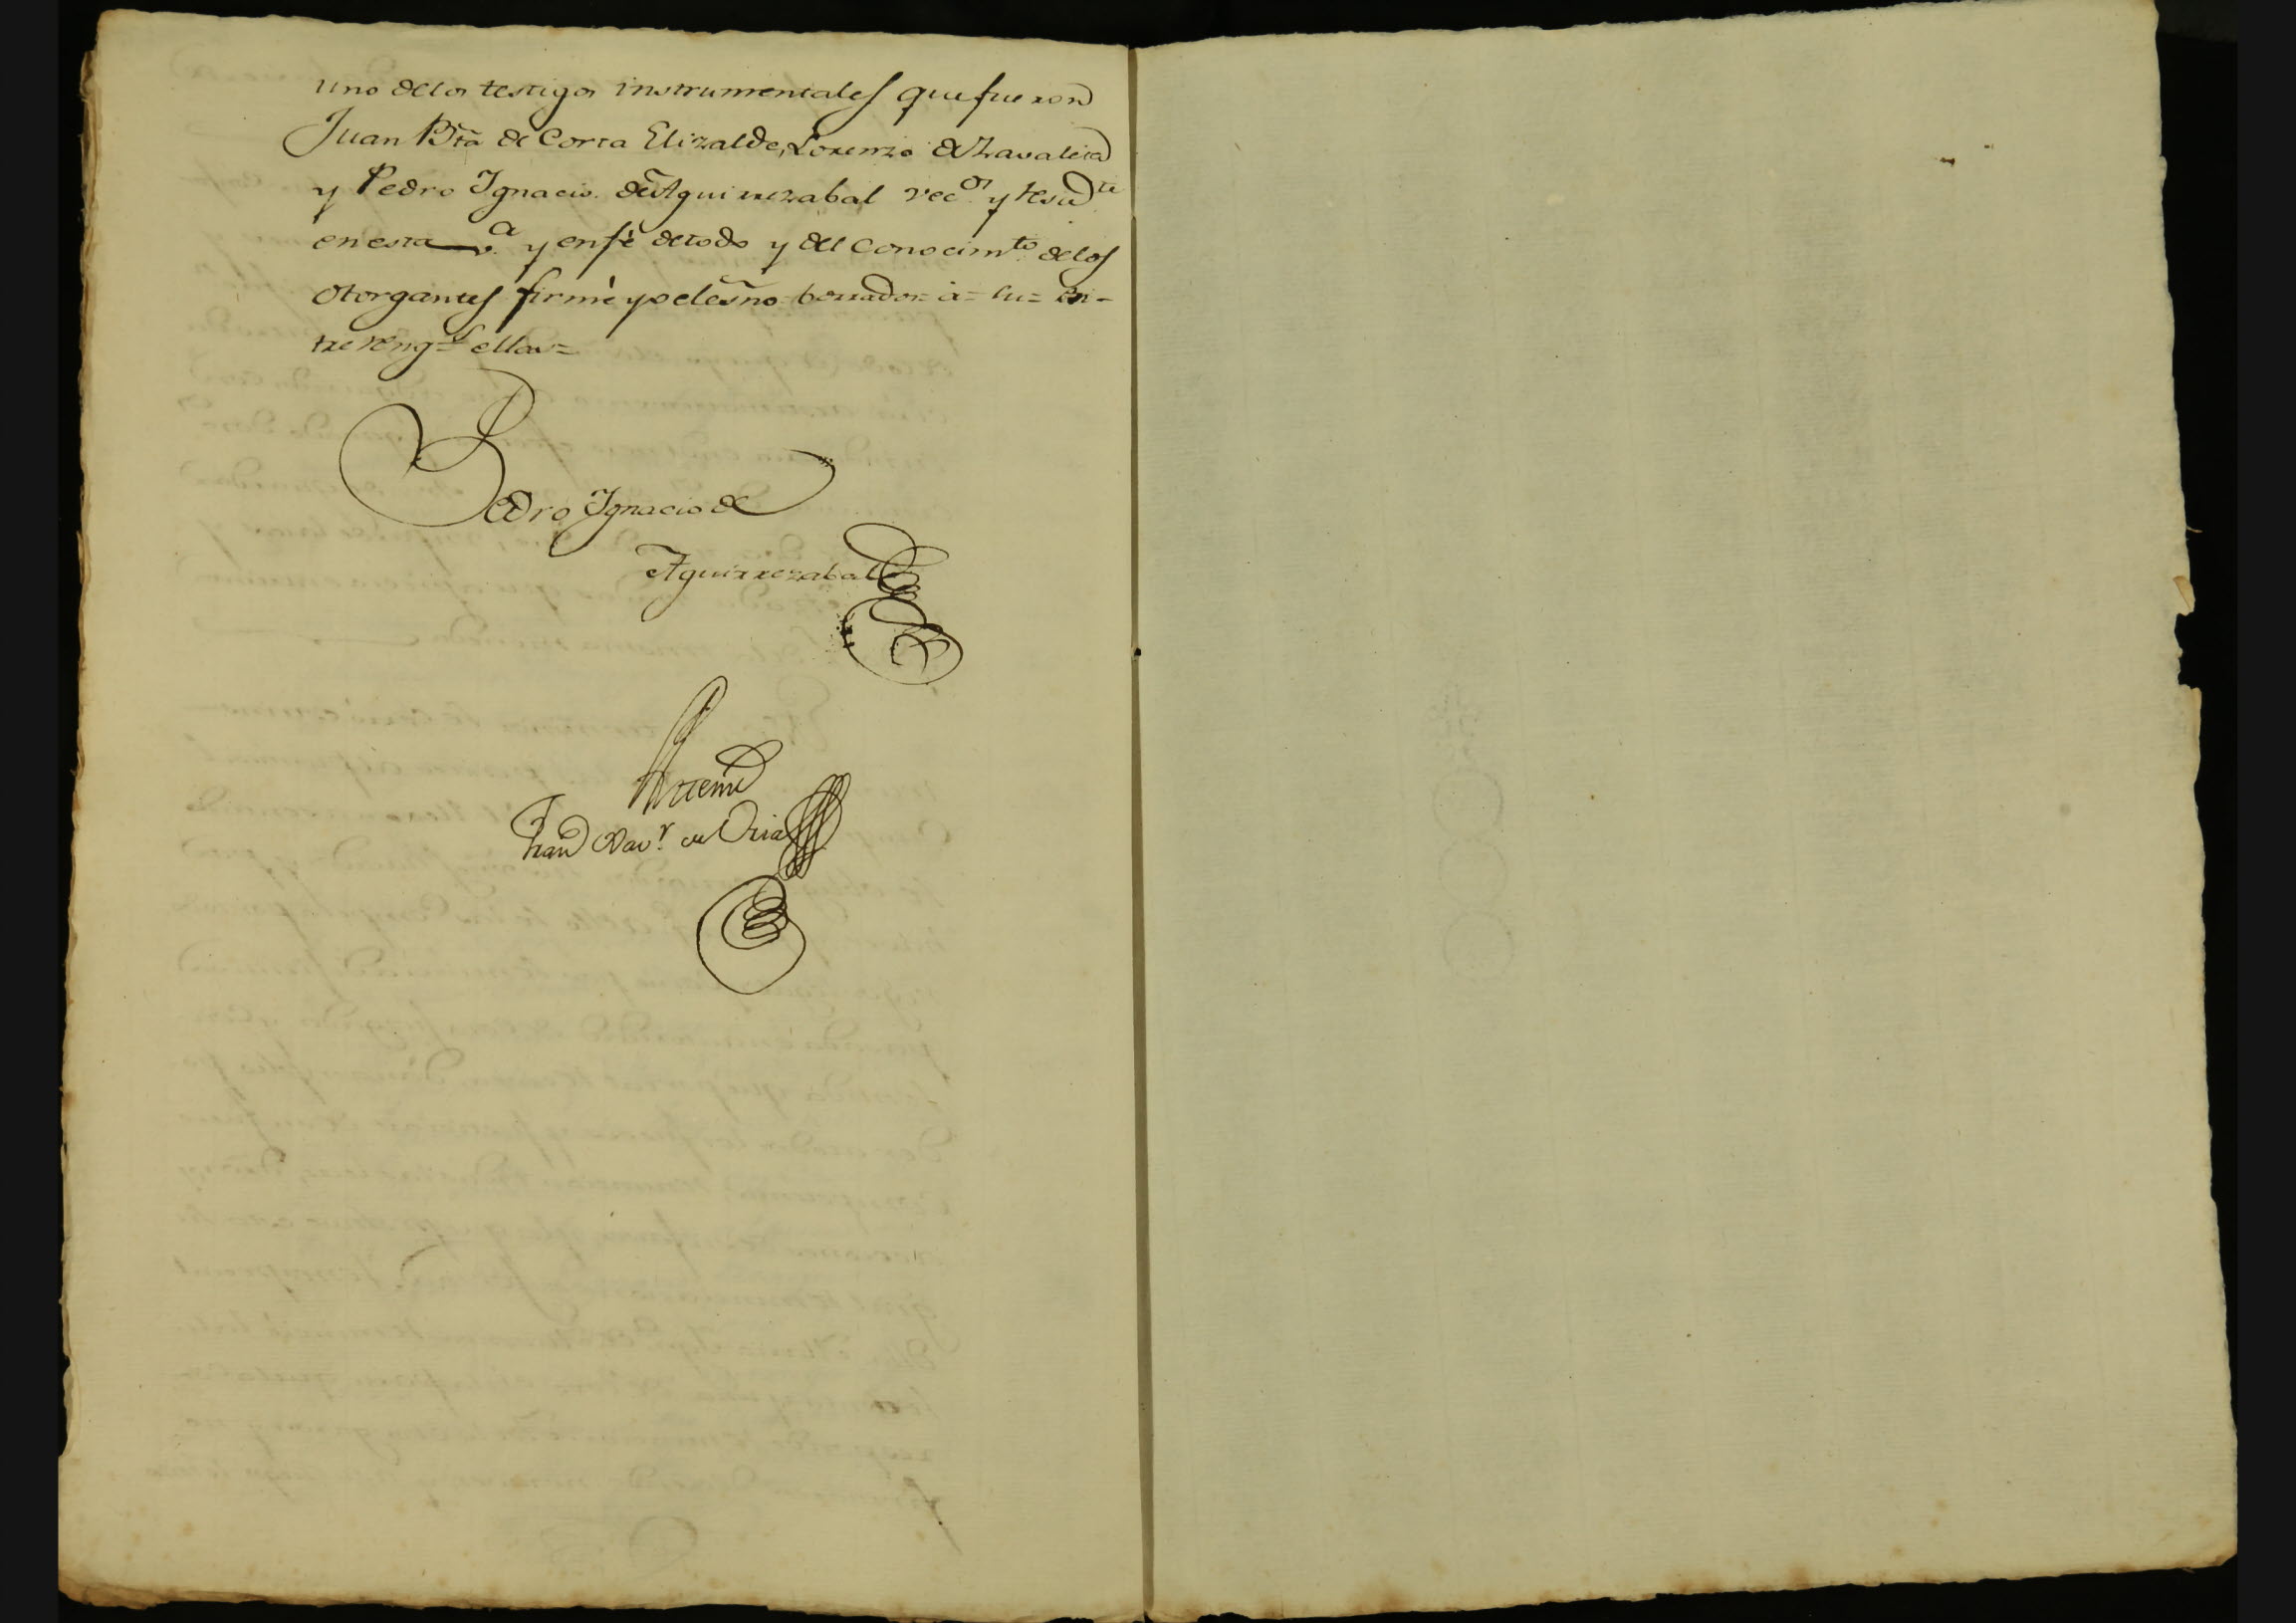 uno de los testigos instrumentales que fueron
Juan Bta de Corta Elizalde, Lorenzo de Zavaleta
y Pedro Ignacio de Aguirrezabal vecos y residte
en esta va y en fé de todo y del Conocimto de los
Otorgantes firmé yo el esno borrador= a= lu= en-
tre reng=s ellas=
Pedro Ignacio de
Aguirrezabal
Antemi
Xavr de Oria